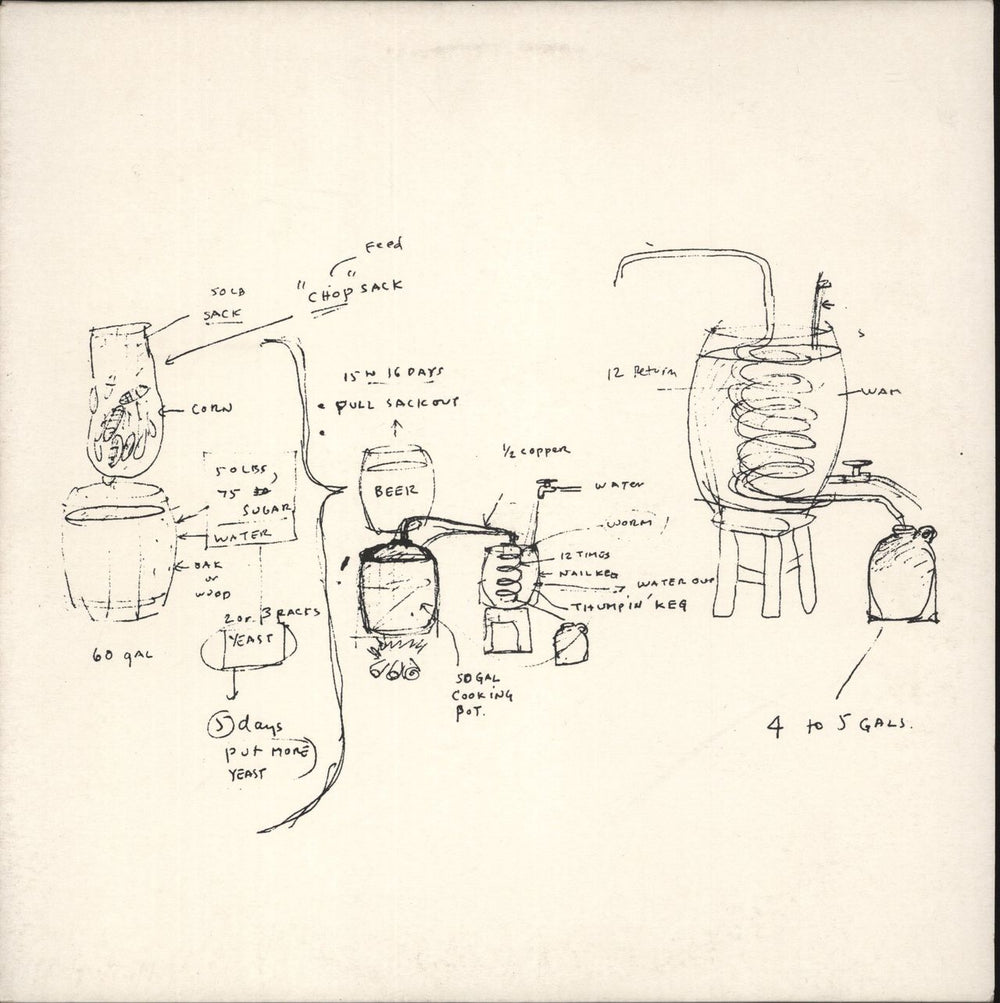 Feed
"CHOP" SACK
50 LB
SACK
CORN
50 LBS,
75
SUGAR
WATER
OAK
or
WOOD
60 gAL
2 or 3 PACKS
YEAST
5 days
put MORE
YEAST
15 16 DAYS
PULL SACK OUT
BEER
1/2 COPPER
WATER
WORM
12 TIMES
NAIL KEG
WATER OUT
THUMPIN' KEG
50 GAL
COOKING
POT.
12 Return
4 to 5 GALS.